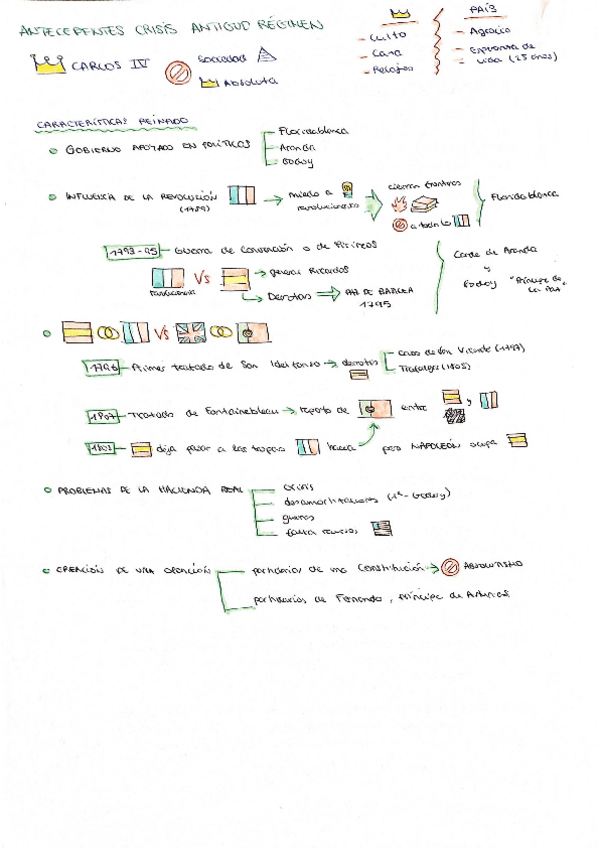 ANTECEDENTES CRISIS ANTIGUO RÉGIMEN
CARLOS IV
Sociedad
Absoluta
- Culto
- Caza
- Relojes
PAÍS
- Agrario
- Esperanza de
vida (25 años)
CARACTERÍSTICAS REINADO
GOBIERNO APOYADO EN POLÍTICOS
Floridablanca
Aranda
Godoy
INFLUENCIA DE LA REVOLUCIÓN
(1789)
miedo a
revolucionarios
cierran fronteras
a todo lo
Floridablanca
1793-95 Guerra de Convención o de Pirineos
VS
general Ricardos
Derrotas
PAZ DE BASILEA
1795
Conde de Aranda
y
Godoy "Príncipe de
la Paz"
VS
1796 Primer tratado de San Ildefonso
derrotas
Cabo de San Vicente (1797)
Trafalgar (1805)
1807 Tratado de Fontainebleau
reparto de
entre
y
1808
deja pasar a las tropas
hacia
pero NAPOLEÓN ocupa
PROBLEMAS DE LA HACIENDA REAL
crisis
desamortizaciones (1ª - Godoy)
guerras
falta recursos
CREACIÓN DE UNA OPOSICIÓN
partidarios de una Constitución
ABSOLUTISMO
partidarios de Fernando, príncipe de Asturias